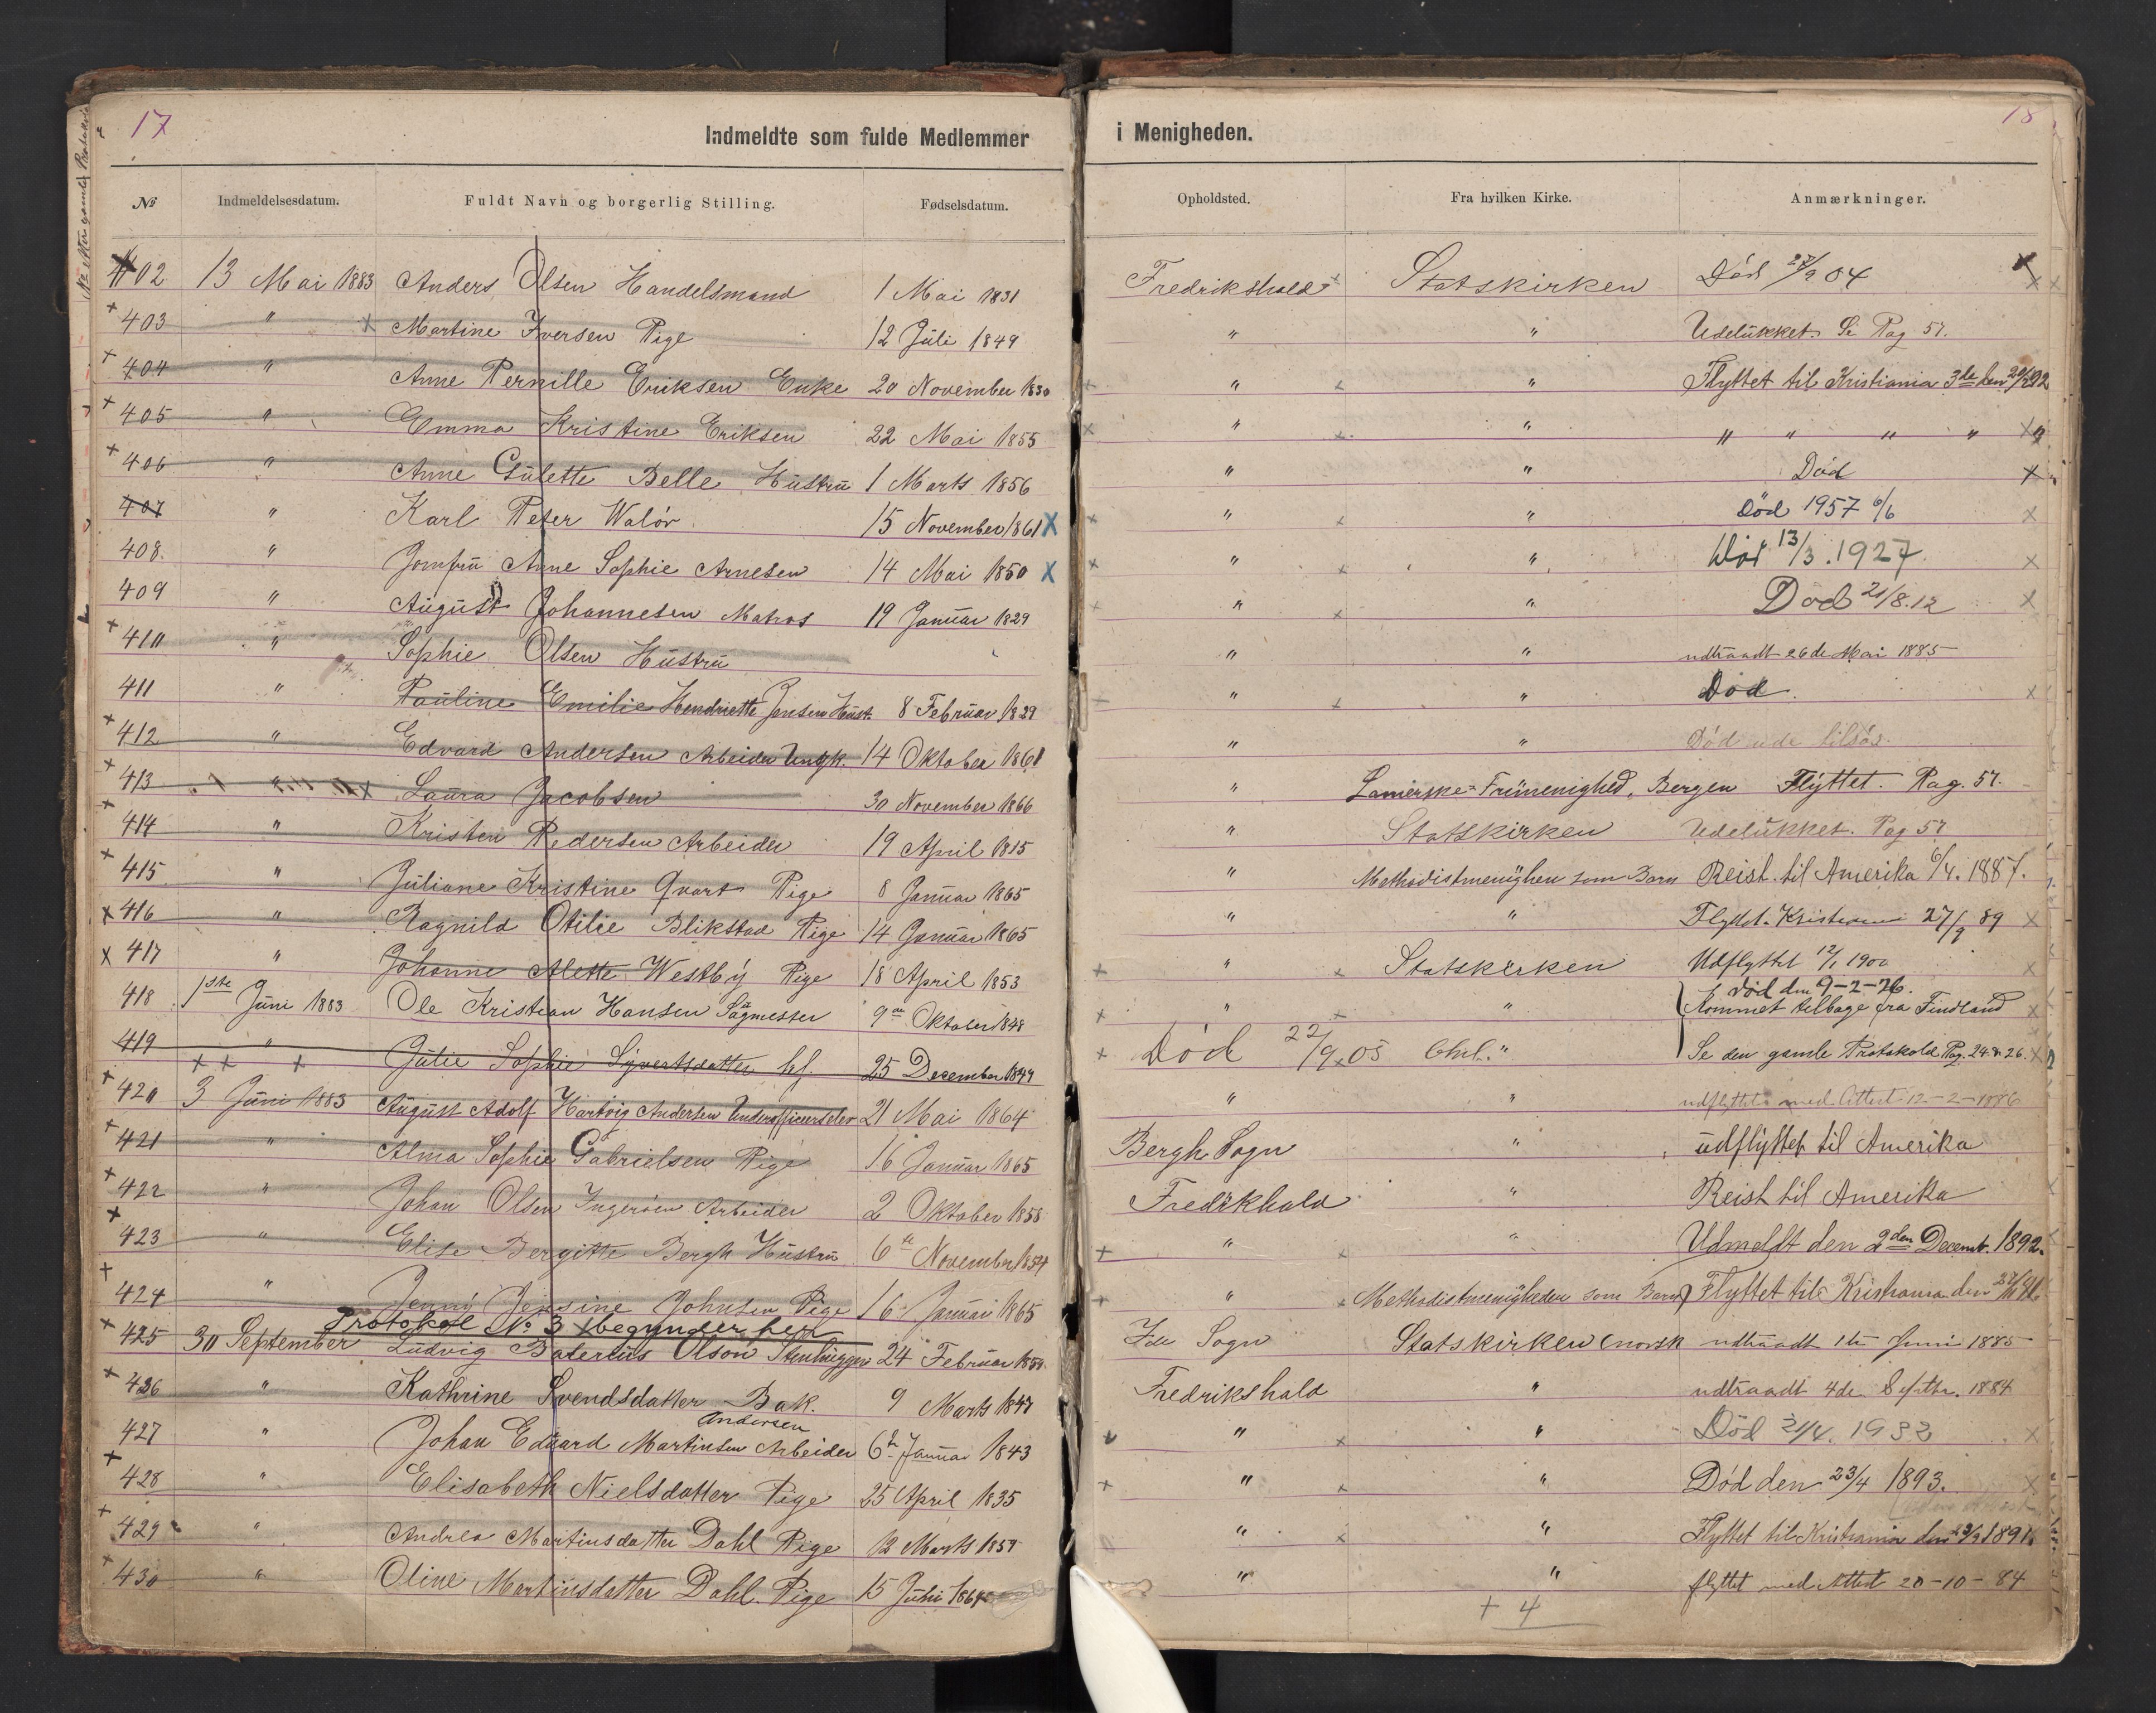 17
Indmeldte som fulde Medlemmer i Menigheden.
18
№ Indmeldelsesdatum. Fuldt Navn og borgerlig Stilling. Fødselsdatum. Opholdsted. Fra hvilken Kirke. Anmærkninger.
402 13 Mai 1883 Anders Olsen Handelsmand 1 Mai 1831 Fredrikshald Statskirken Död 27/9 04
403 " Martine Iversen Pige 12 Juli 1849 " " Udelukket. Se Pag 57.
404 " Anne Pernille Eriksen Enke 20 November 1830 " " Flyttet til Kristiania 3de den
405 " Emma Kristine Eriksen 22 Mai 1855 " " " " " "
406 " Anne Gulette Belle Hustru 1 Marts 1856 " " Död
407 " Karl Peter Walör 15 November 1861 " " Död 1957 6/6
408. " Jomfru Anne Sophie Arnesen 14 Mai 1850 " " Död 13/3.1927.
409 " August Johannesen Matros 19 Januar 1829 " " Död 21/8.12
410 " Sophie Olsen Hustru " " udtraadt 26de Mai 1885
411 " Pauline Emilie Hendriette Jensen Hust. 8 Februar 1829 " " Död.
412 " Edvard Andersen Arbeider Ungk. 14 Oktober 1861 " " Död ude tilsös.
413 " Laura Jacobsen 30 November 1866 " Bergen Flyttet. Pag. 57.
414 " Kristen Pedersen Arbeider 19 April 1815 " Statskirken Udelukket. Pag 57
415 " Juliane Kristine Qvart Pige 8 Januar 1865 " Methodistmenighen som Barn Reist til Amerika 6/4. 1887.
416 " Ragnild Otilie Blikstad Pige 14 Januar 1865 " " Flyttet Kristiania 27/9 89
417 " Johanne Alette Westby Pige 18 April 1853 " Statskirken Udflyttet 12/1 1900
418 1ste Juni 1883 Ole Kristian Hansen Sagmester 9de Oktober 1848 " " död den 9-2-26. Kommet tilbage fra Findland
419 " Julie Sophie Syvertsdatter hf. 25 December 1849 Död 22/9.05 Chrl. " Se den gamle Protokold Pag. 24 & 26.
420 3 Juni 1883 August Adolf Hartvig Andersen Underofficerselev 21 Mai 1864 " " udflyttet med Attest 12-2-1886
421 " Alma Sophie Gabrielsen Pige 16 Januar 1865 Bergh Sogn " udflyttet til Amerika
422 " Johan Olsen Ingeröen Arbeider 2 Oktober 1858 Fredikhald " Reist til Amerika
423 " Elise Bergitte Bergh Hustru 6te November 1854 " " Udmeldt den 2den Decemb. 1892.
424 " Jenny Jensine Johnsen Pige 16 Januar 1865 " Methodistmenigheden som Barn Flyttet til Kristiania den
Protokol No 3 begynder her
425 30 September Ludvig Olson Stenhugger 24 Februar Ide Sogn Statskirken (norsk udtraadt 1te Juni 1885
426 " Kathrine Svendsdatter Bak. 9 Marts 1847 Fredrikshald " udtraadt 4de Septbr. 1884
Andersen
427 " Johan Eduard Martinsen Arbeider 6te Januar 1843 " " Död 21/4. 1932
428 " Elisabeth Nielsdatter Pige 25 April 1835 " " Död den 23/4 1893.
429 " Andrea Martinsdatter Dahl Pige 12 Marts 1859 " " Flyttet til Kristiania den 23/9 1891.
430 " Oline Martinsdatter Dahl. Pige 15 Juni 1864 " " flyttet med Attest 20-10-84
+ 4